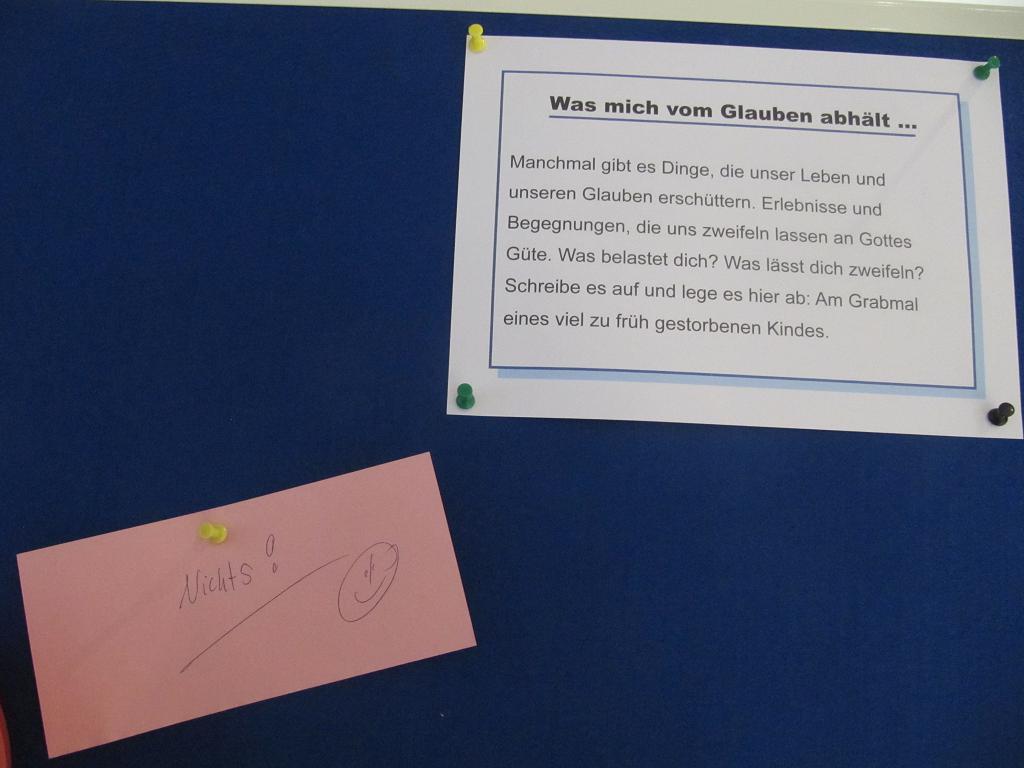 Was mich vom Glauben abhält ...
Manchmal gibt es Dinge, die unser Leben und
unseren Glauben erschüttern. Erlebnisse und
Begegnungen, die uns zweifeln lassen an Gottes
Güte. Was belastet dich? Was lässt dich zweifeln?
Schreibe es auf und lege es hier ab: Am Grabmal
eines viel zu früh gestorbenen Kindes.
Nichts!